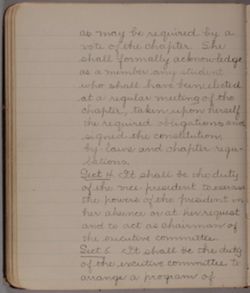 as may be required by a
vote of the chapter. She
shall formally acknowledge
as a member any student
who shall have been elected
at a regular meeting of the
chapter, taken upon herself
the required obligations and
signed the constitution,
by-laws and chapter regu-
lations.
Sect 4. It shall be the duty
of the vice president to exercise
the powers of the president in
her absence or at her request
and to act as chairman of
the executive committee.
Sect 5. It shall be the duty
of the executive committee to
arrange a program of